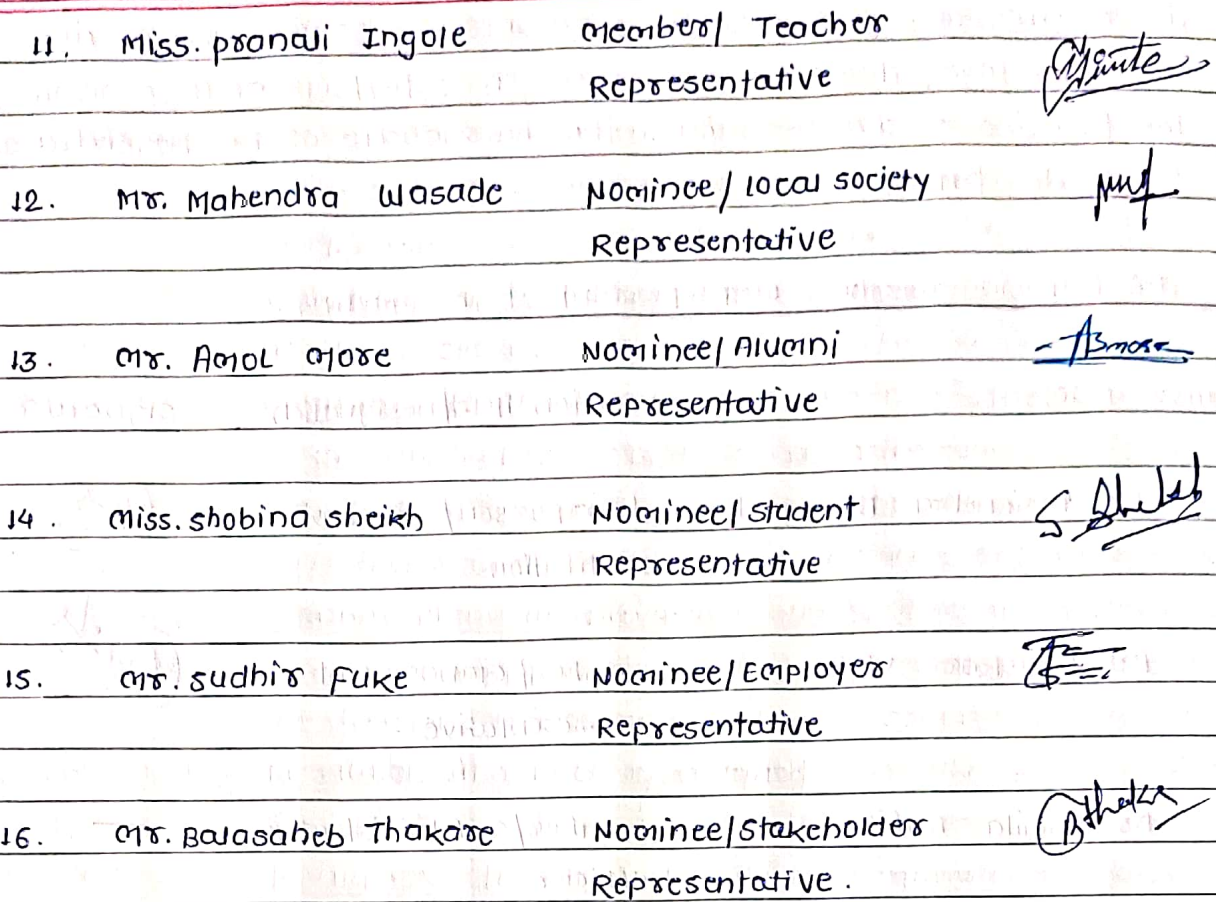 11. Miss. pranali Ingole Member/ Teacher
Representative
12. Mr. Mahendra Wasade Nominee/ local society
Representative
13. Mr. Amol More Nominee/ Alumni
Representative
14. Miss. shobina sheikh Nominee/ student
Representative
15. Mr. sudhir Fuke Nominee/ Employer
Representative
16. Mr. Balasaheb Thakare Nominee/ Stakeholder
Representative.